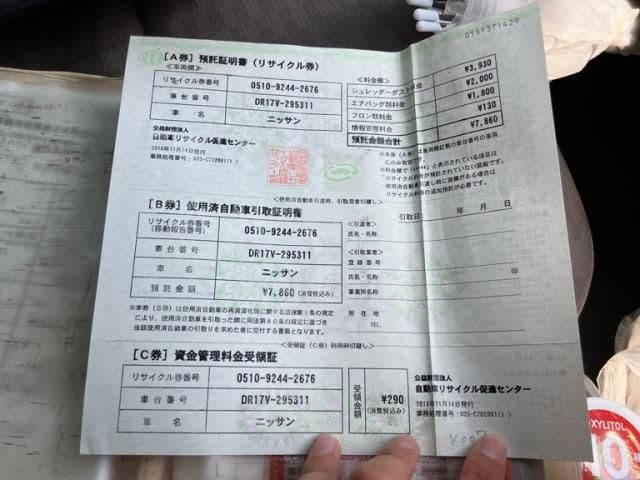 0131371629
[A券] 預託証明書 (リサイクル券)
<車両欄>
リサイクル券番号 0510-9244-2676
車台番号 DR17V-295311
車名 ニッサン
公益財団法人
自動車リサイクル促進センター
2018年11月14日発行
事務処理番号:005-C702061( )
<料金欄>
シュレッダーダスト料金 ¥3,930
エアバッグ類料金 ¥2,000
フロン類料金 ¥1,800
情報管理料金 ¥130
預託金額合計 ¥7,860
[B券] 使用済自動車引取証明書
リサイクル券番号
(移動報告番号) 0510-9244-2676
車台番号 DR17V-295311
車名 ニッサン
預託金額 ¥7,860 (消費税込み)
※本券(B券)は使用済自動車の再資源化等に関する法律第9条の規定
により、使用済自動車を引取った際に同法第80条の規定に基づき
当該使用済自動車の引取りを求めた者に交付する書面となります。
引取日: 年 月 日
<引渡者>
氏名・名称
<引取業者>
登録番号
氏名・名称 印
事業所名称
所在地
TEL.
<受領証(C券)利用時切離し>
[C券] 資金管理料金受領証
リサイクル券番号 0510-9244-2676
車台番号 DR17V-295311
車名 ニッサン
受領金額 ¥290
(消費税込み)
公益財団法人
自動車リサイクル促進センター
2018年11月14日発行
事務処理番号:005-C702061( )
XYLITOL